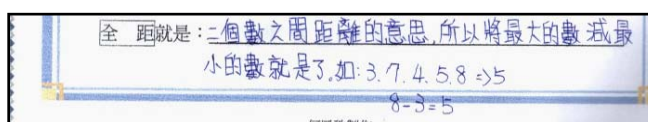 全 距就是：二個數之間距離的意思，所以將最大的數減最
小的數就是了。如：3.7.4.5.8=>5
8-3=5